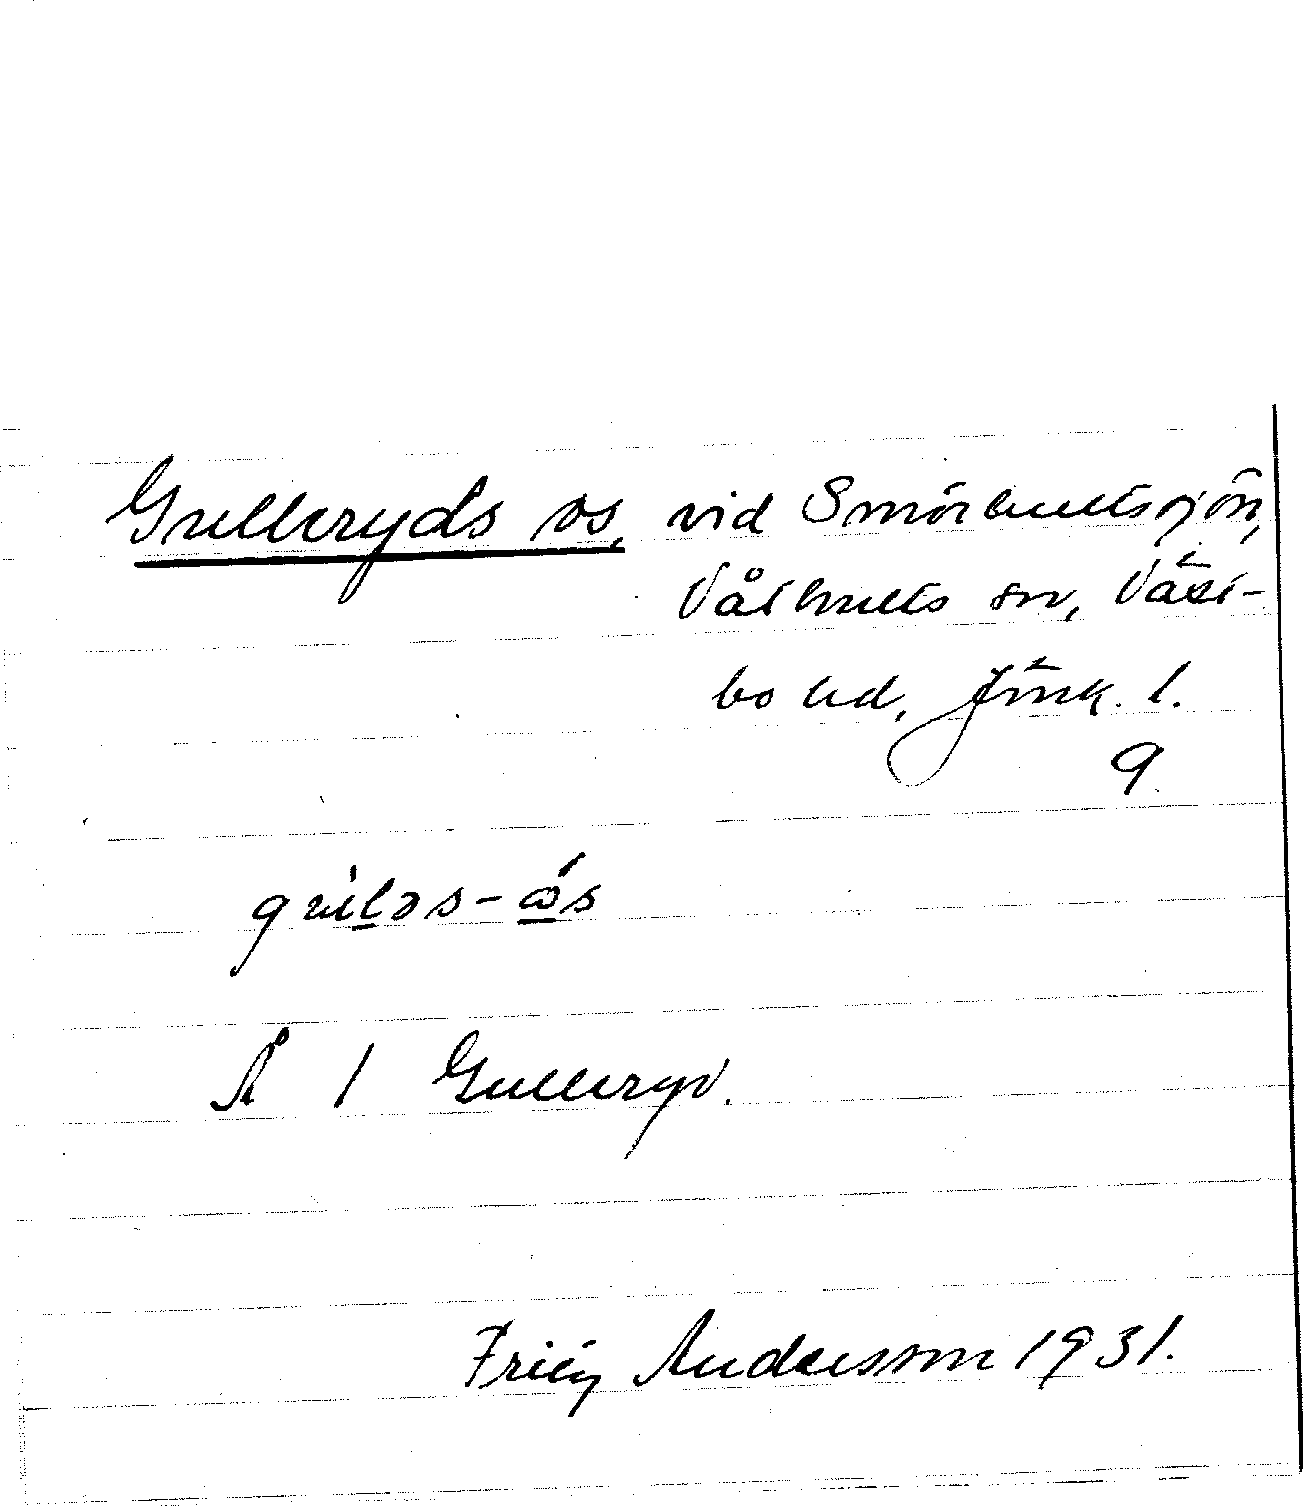 Gulleryds os, vid Smörhultsjön,
Våthults sn, Väst-
bo hd, Jönk. l.
9
guləs-ós
Å 1 Gulleryd.
Andersson 1931.